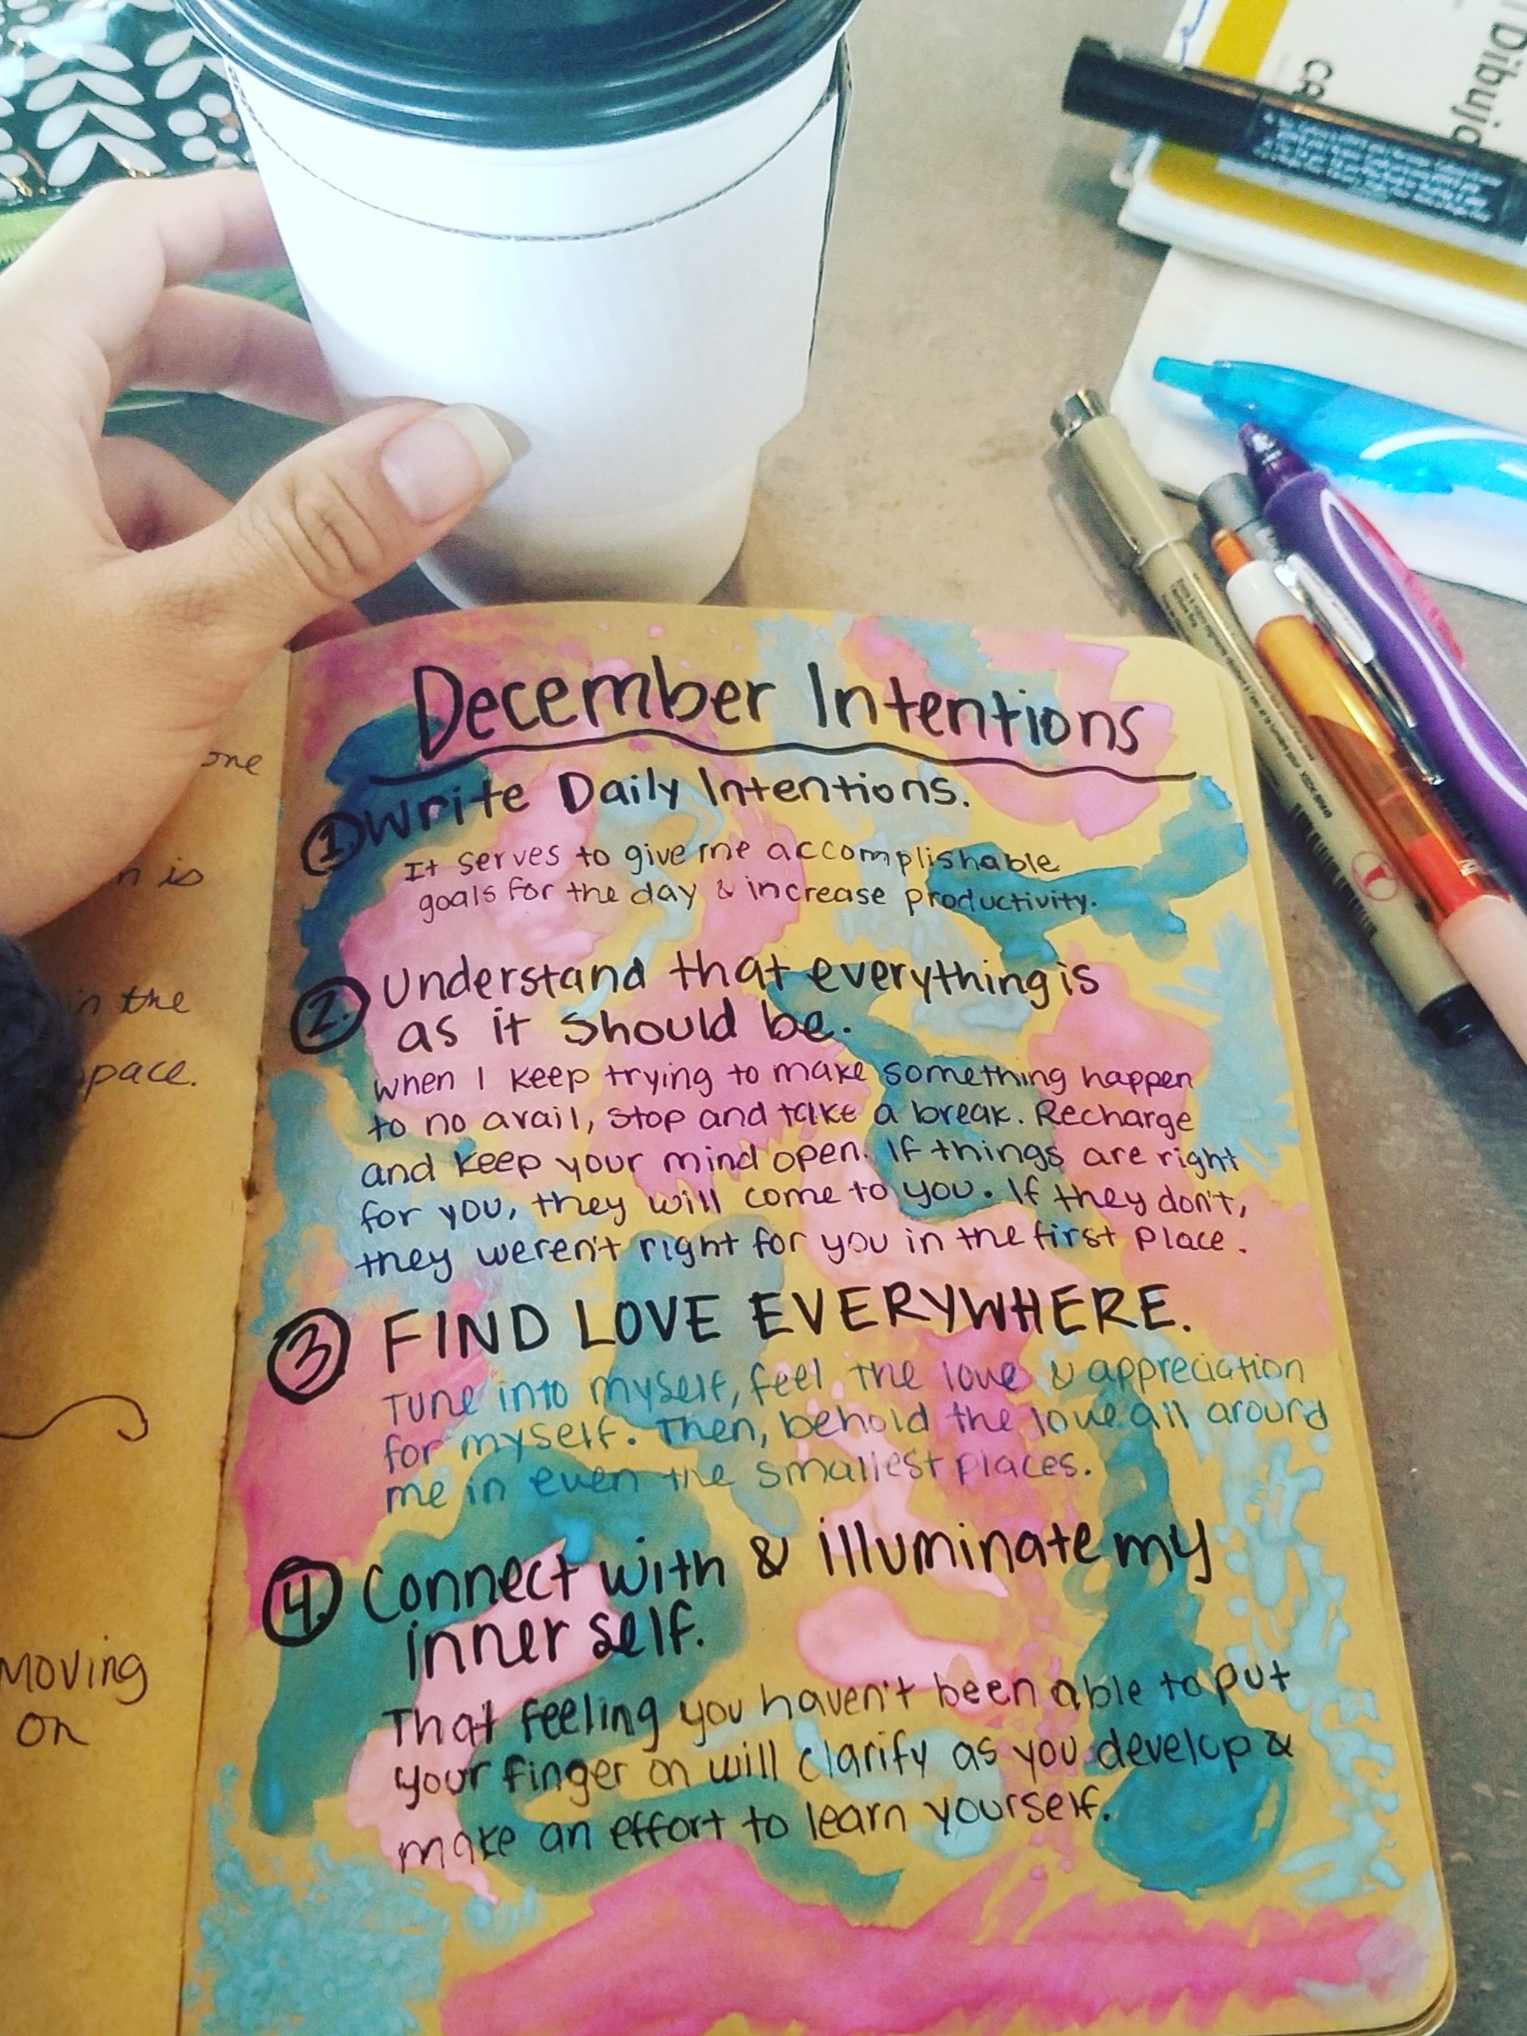 December Intentions
1. Write Daily Intentions.
It serves to give me accomplishable
goals for the day & increase productivity.
2. Understand that everything is
as it should be.
when I keep trying to make something happen
to no avail, stop and take a break. Recharge
and keep your mind open. If things are right
for you, they will come to you. If they don't,
they weren't right for you in the first place.
3 FIND LOVE EVERYWHERE.
Tune into myself, feel the love & appreciation
for myself. Then, behold the love all around
me in even the smallest places.
4. Connect with & illuminate my
inner self.
That feeling you haven't been able to put
your finger on will clarify as you develop &
make an effort to learn yourself.
one
is
the
pace.
Moving
on
Dibujo